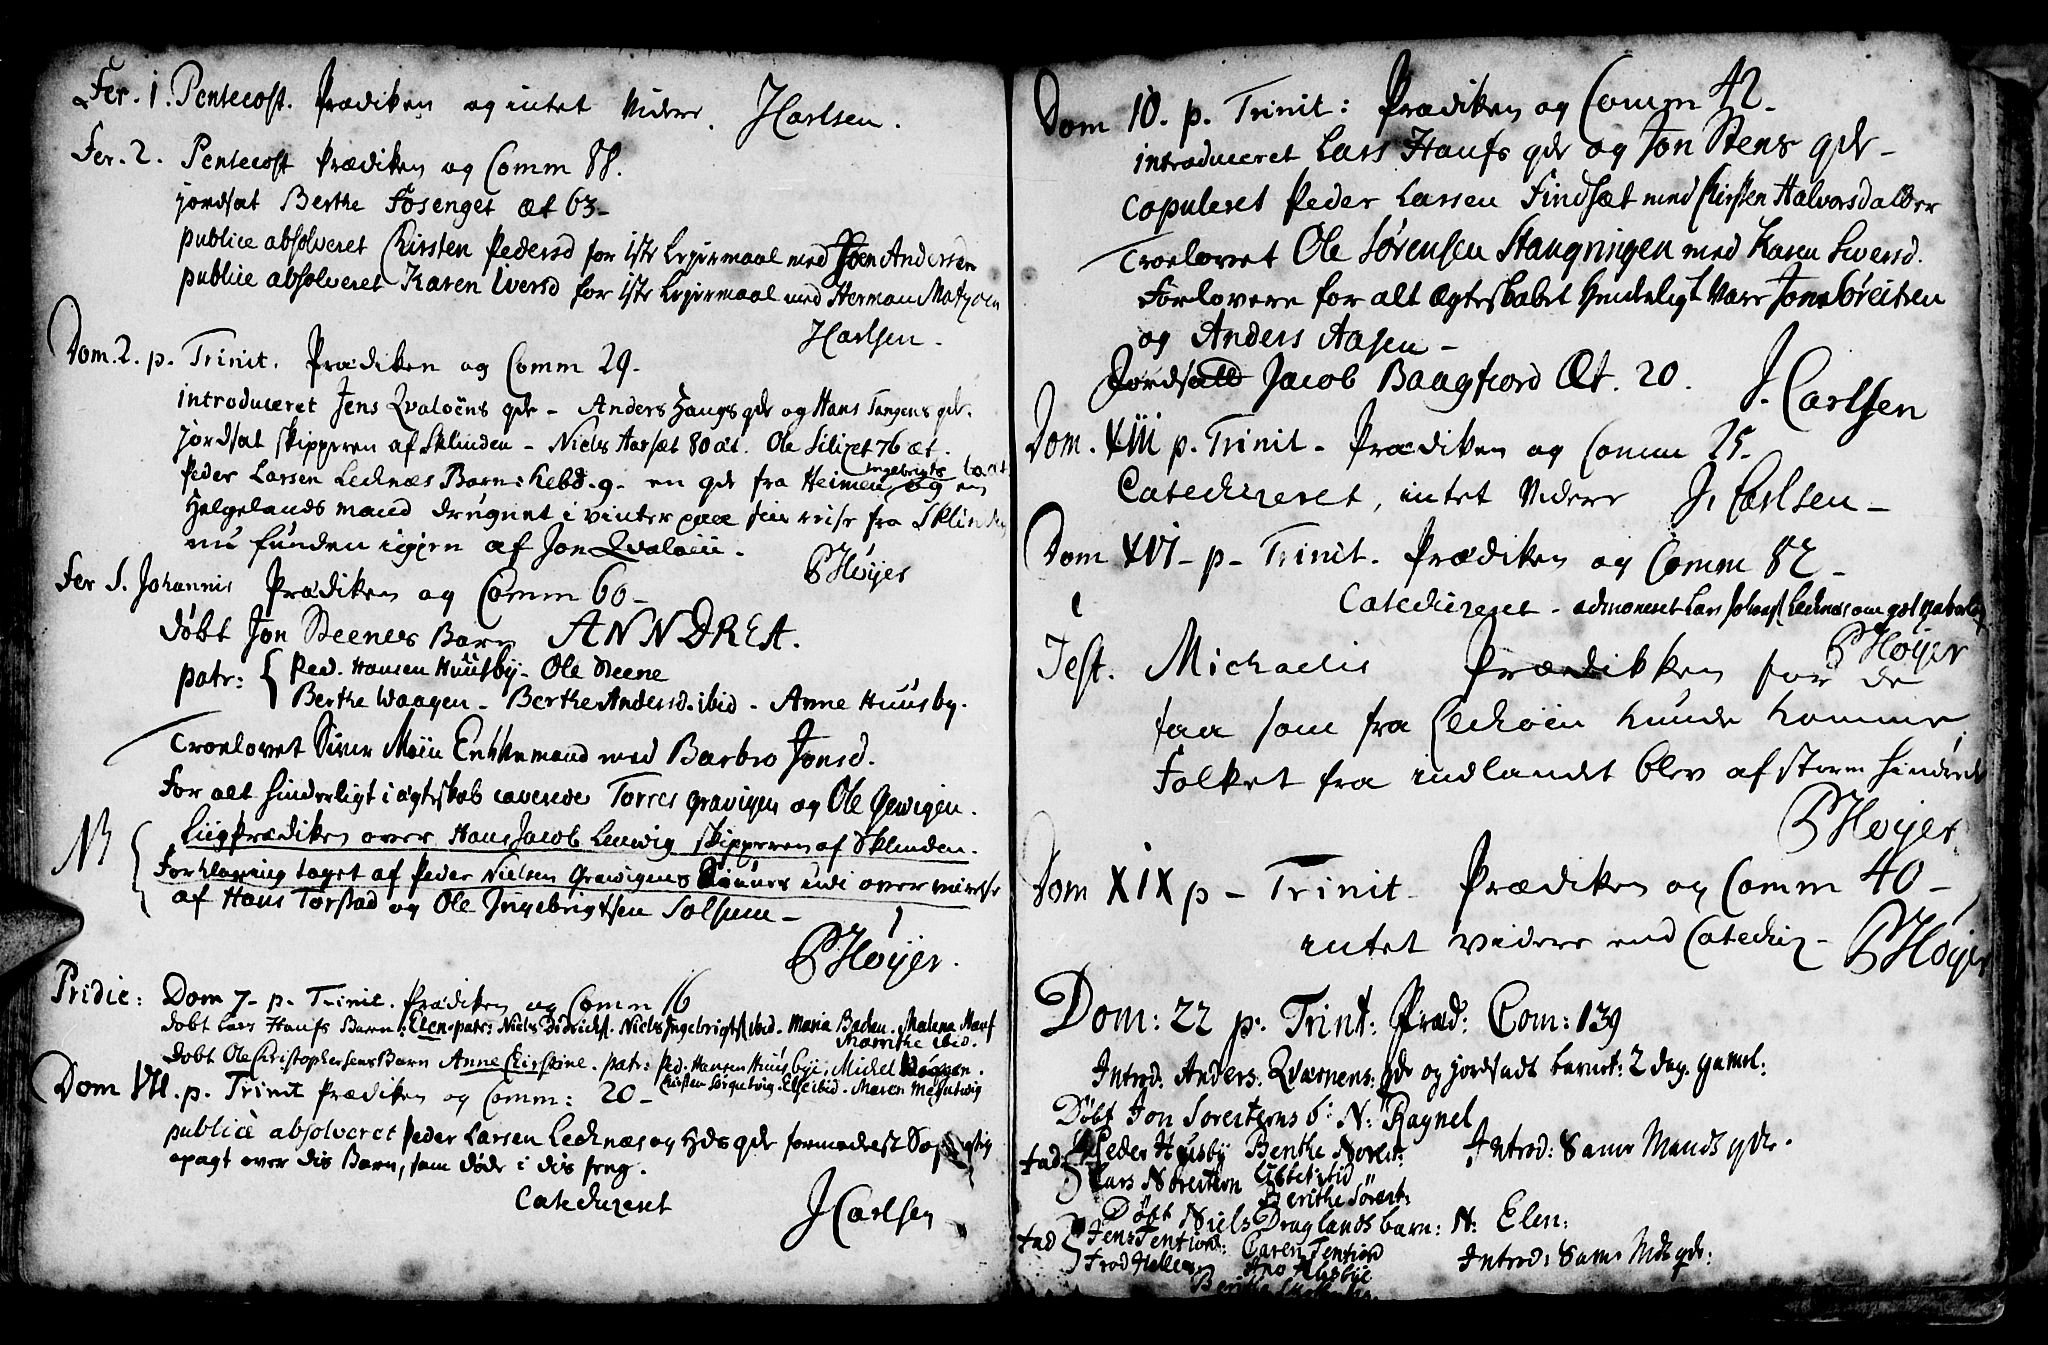 Fer. 1. Pentecost. Prædiken og intet videre. JCarlsen.
Fer. 2. Pentecost Prædiken og Comm 88.
jordsat Berthe Fosenget æt 63-
publice absolveret Kirsten Pedersd for 1ste Lejermaal med Joen Andersen
publice absolveret Karen Iversd for 1ste Lejermaal med Herman Matzøen
JCarlsen-
Dom. 2. p. Trinit. Prædiken og Comm 29.
introduceret Jens Qvaløens qde - Anders Haugs qde og Hans Tangens qde.
jordsat skipperen af Sklinden - Niels Aarsæt 80 æt. Ole 76 æt.
Peder Larsen Lecknæs Barn: hebd. 9. en qde fra Heimen, Ingebrigts og en
Helgelands mand drugnet i vinter paa sin reise fra Sklinden
nu funden igjen af Jon Qvaløen.
PHøyer
Fer S. Johannis Prædiken og Comm 60-
døbt Jon Steenes Barn ANNDREA.
patr: { Ped. Hansen Huusby- Ole Steene
Berthe Waagen - Berthe Andersd. ibid - Anne Huusby.
Troelovet Siver Møin Enkkemand med Barbro Jonsd.
For alt hinderligt i ægteskab caverede Torres Gravigen og Ole Gravigen.
NB { Liigprædiken over Hans Jacob Leuwig skipperen af Sklinden.
Forklaring taget af Peder Nielsen Gravigens
af Hans Torstad og Ole Ingebrigtsen Solsem-
PHøyer.
Pridie: Dom 7- p. Trinit. Prædiken og Comm 16
døbt Lars Haufs Barn: Elen. patr: Niels Didrichs. Niels Ingebrigts ibid. Maria Baden. Malena Hauf
Marithe ibid.
døbt Ole Christophersens Barn Anne Chirstine. patr: Ped. Hansen Huusbye, Michel
Kirsten Sørgutvig. Else ibid. Maren
Dom VII. p. Trinit Prædiken og Comm: 20-
publicè absolveret Peder Larsen Lecknæs og Hds qde formedelst
apagt over dis Barn, som døde i dis seng.
Catechizeret JCarlsen
Dom 10. p. Trinit: Prædiken og Comm 42-
introduceret Lars Haufs qde og Jon Stens qde-
Copuleret Peder Larsen Findsæt med Kirsten Halvorsd
Troelovet Ole Sørensen Stangringen med Karen Siversd.
Forlovere for alt ægteskabet hinderligt vare Jon Søreitsen
og Anders Aasen-
Jordsatt Jacob Baagfiord Æt. 20.
J. Carlsen
Dom. XIII p. Trinit- Prædiken og Comm 25-
Catechizeret, intet videre J. Carlsen-
Dom XVI- p- Trinit. Prædiken og Comm 82-
Catechizeret- admoneret Lars Lecknæs om
PHøyer
Fest. Michaelis Prædikken for de
faa som fra Leckøen kunde komme,
Folket fra indlandet blev af storm hindrede
PHøyer
Dom XIX p- Trinit- Prædiken og Comm 40-
intet videre end Catechiz- PHøyer
Dom: 22 p. Trint: Præd: Com: 139
Introd: Anders. Qværnens: qde og jordsadt barnet: 2 dag. gamel:
Døbt Jon Sørestens b: N: Ragnel
fad { Peder Huusby Berthe Norest: Introd: Same Mands qde.
Lars Norestem Lisbet ibid
Berithe Sørest:
Døbt Niels Draglands barn: N: Elen:
fad { Jens Tentiord: Caren Tentiord Introd: Same Mds qde:
Ane Husbye